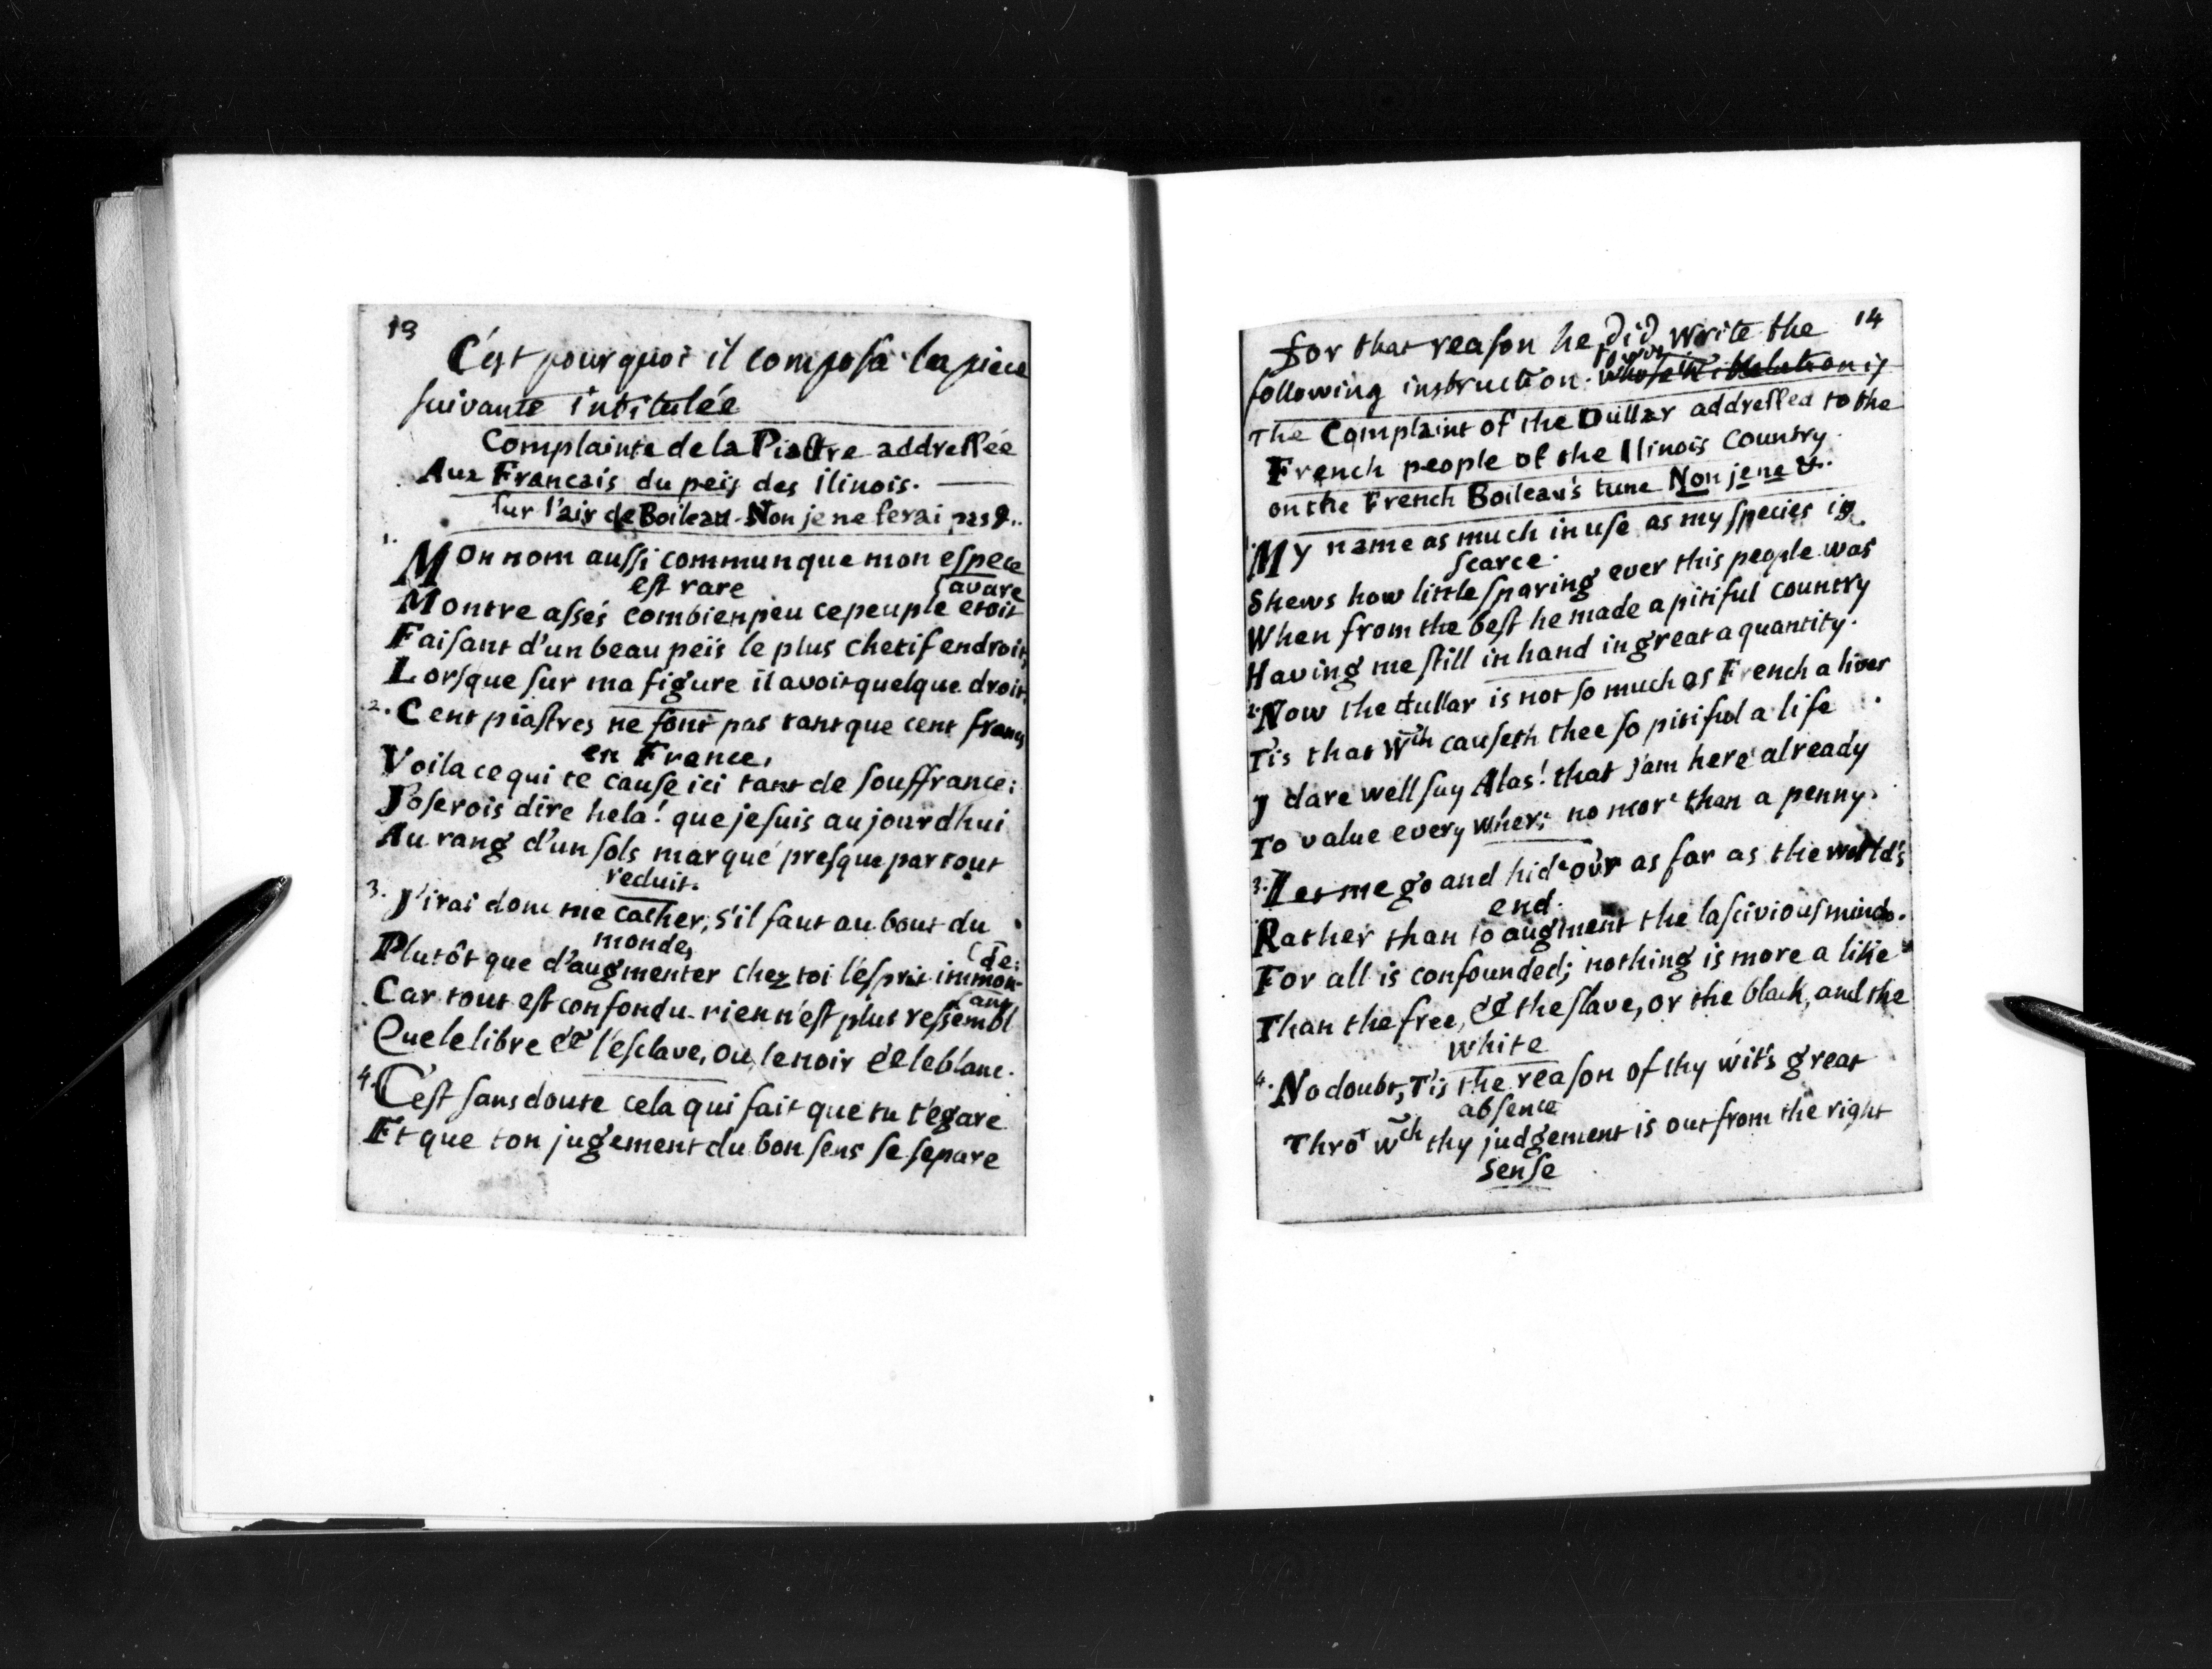 13
C'est pourquoi il composa la piece
suivante intitulée
Complainte de la Piastre addressée
Aux Francais du peïs des ilinois.
sur l'air de Boileau. Non je ne ferai pas &..
1. Mon nom aussi commun que mon espece
est rare
Montre assés combien peu ce peuple etoit (avare
Faisant d'un beau peïs le plus chetif endroit,
Lorsque sur ma figure il avoit quelque droit.
2. Cent piastres ne font pas tant que cent francs
en France,
Voila ce qui te cause ici tant de souffrance:
J'oserois dire hela! que je suis aujourdhui
Au rang d'un sols marqué presque partout
reduit.
3. J'irai donc me cacher, s'il faut au bout du
monde,
Plutôt que d'augmenter chez toi l'esprit immon- (de:
Car tout est confondu. rien n'est plus ressembl (ant
Que le libre & l'esclave, ou le noir & le blanc.
4. C'est sans doute cela qui fait que tu t'egare
Et que ton jugement du bon sens se separe
14
for that reason he did write the
following instruction.
The Complaint of the Dullar addressed to the
French people of the Ilinois Country.
on the French Boileau's tune Non je ne &..
1. My name as much in use as my species is
scarce.
Shews how little sparing ever this people was
When from the best he made a pitiful country
Having me still in hand in great a quantity.
2. Now the dullar is not so much as French a liver
T'is that wch causeth thee so pitiful a life
J dare well say Alas! that J'am here already
To value every where no more than a penny.
3. Let me go and hide our as far as the world's
end.
Rather than to augment the lascivious minds.
For all is confounded; nothing is more a like
Than the free, & the slave, or the black, and the
white
4. No doubt, T'is the reason of thy wit's great
absence
Thro' wch thy judgement is out from the right
sense